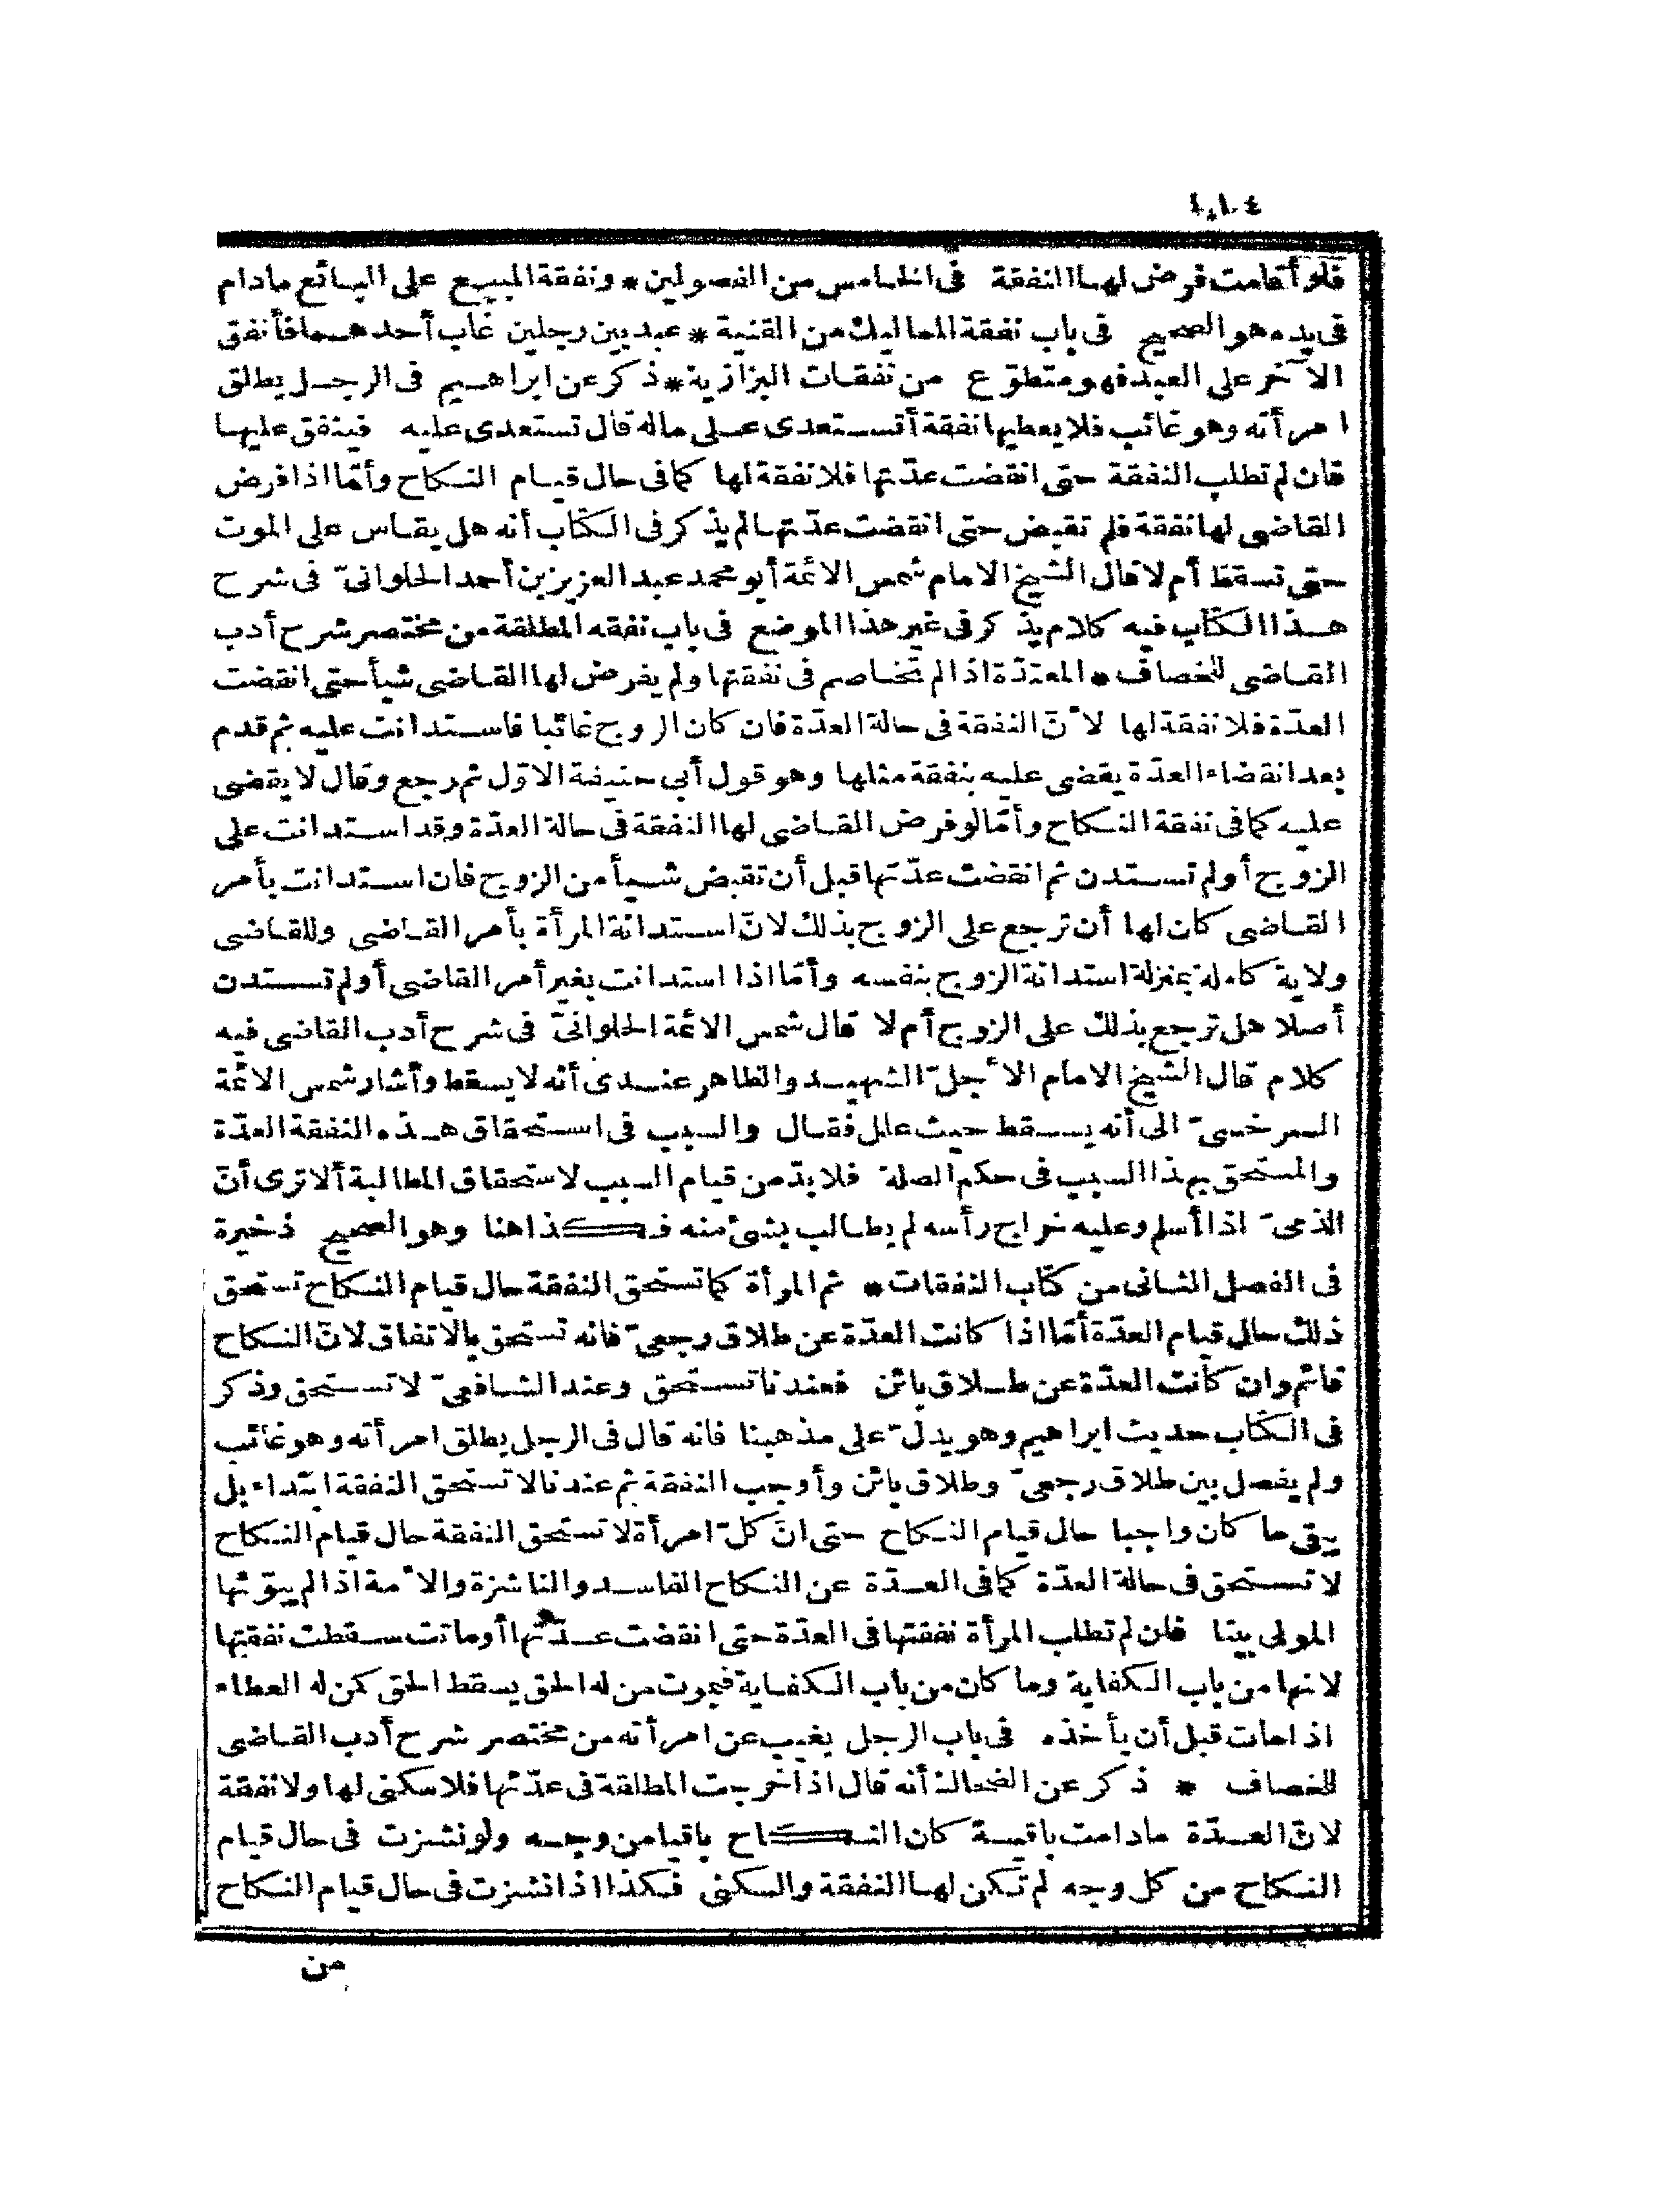 فلو أقامت فرض لها النفقة فى الخامس من الفصولين * ونفقة المبيع على البائع مادام
فى يده هو الصحيح فى باب نفقة المماليك من القنية * عبد بين رجلين غاب أحدهما فأنفق
الآخر على العبد فهو متطوّع من نفقات البزازية * ذكر عن ابراهيم فى الرجل يطلق
امرأته وهو غائب فلا يعطيها نفقة أتستعدى على ماله قال تستعدى عليه فينفق عليها
فان لم تطلب النفقة حتى انقضت عدّتها فلا نفقة لها كما فى حال قيام النكاح وأمّا اذا فرض
القاضى لها نفقة فلم تقبض حتى انقضت عدّتها لم يذكر فى الكتاب أنه هل يقاس على الموت
حتى تسقط أم لا قال الشيخ الامام شمس الائمة أبو محمد عبد العزيز بن أحمد الحلوانىّ فى شرح
هذا الكتاب فيه كلام يذكر فى غير هذا الموضع فى باب نفقه المطلقة من مختصر شرح أدب
القاضى للخصاف * المعتدّة اذا لم تخاصم فى نفقتها ولم يفرض لها القاضى شيأ حتى انقضت
العدّة فلا نفقة لها لأنّ النفقة فى حالة العدّة فان كان الزوج غائبا فاستدانت عليه ثم قدم
بعد انقضاء العدّة يقضى عليه بنفقة مثلها وهو قول أبى حنيفة الاوّل ثم رجع وقال لا يقضى
عليه كما فى نفقة النكاح وأمّا لو فرض القاضى لها النفقة فى حالة العدّة وقد استدانت على
الزوج أو لم تستدن ثم انقضت عدّتها قبل أن تقبض شيأ من الزوج فان استدانت بأمر
القاضى كان لها أن ترجع على الزوج بذلك لانّ استدانة المرأة بأمر القاضى وللقاضى
ولاية كاملة بمنزلة استدانة الزوج بنفسه وأمّا اذا استدانت بغير أمر القاضى أو لم تستدن
أصلا هل ترجع بذلك على الزوج أم لا قال شمس الائمة الحلوانىّ فى شرح أدب القاضى فيه
كلام قال الشيخ الامام الأجلّ الشهيد والظاهر عندى أنه لا يسقط وأشار شمس الائمّة
السرخسىّ الى أنه يسقط حيث علل فقال والسبب فى استحقاق هذه النفقة العدّة
والمستحق بهذا السبب فى حكم الصلة فلا بدّ من قيام السبب لاستحقاق المطالبة ألا ترى أنّ
الذمىّ اذا أسلم وعليه خراج رأسه لم يطالب بشئ منه فكذا هنا وهو الصحيح ذخيرة
فى الفصل الثانى من كتاب النفقات * ثم المرأة كما تستحق النفقة حال قيام النكاح تستحق
ذلك حال قيام العدّة أمّا اذا كانت العدّة عن طلاق رجعىّ فانه تستحق بالاتفاق لانّ النكاح
قائم وان كانت العدّة عن طلاق بائن فعندنا تستحق وعند الشافعىّ لا تستحق وذكر
فى الكتاب حديث ابراهيم وهو يدلّ على مذهبنا فانه قال فى الرجل يطلق امرأته وهو غائب
ولم يفصل بين طلاق رجعىّ وطلاق بائن وأوجب النفقة ثم عندنا لا تستحق النفقة ابتداء بل
يبقى ما كان واجبا حال قيام النكاح حتى انّ كلّ امرأة لا تستحق النفقة حال قيام النكاح
لا تستحق فى حالة العدّة كما فى العدّة عن النكاح الفاسد والناشزة والأمة اذا لم يبوّئها
المولى بيتا فان لم تطلب المرأة نفقتها فى العدّة حتى انقضت عدّتها أو ماتت سقطت نفقتها
لانها من باب الكفاية وما كان من باب الكفاية فبموت من له الحق يسقط الحق كمن له العطاء
اذا مات قبل أن يأخذه فى باب الرجل يغيب عن امرأته من مختصر شرح أدب القاضى
للخصاف * ذكر عن الضحاك أنه قال اذا خرجت المطلقة فى عدّتها فلا سكنى لها ولا نفقة
لانّ العدّة مادامت باقية كان النكاح باقيا من وجه ولو نشزت فى حال قيام
النكاح من كل وجه لم تكن لها النفقة والسكنى فكذا اذا نشزت فى حال قيام النكاح
من